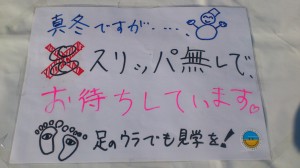 真冬ですが・・・・・
スリッパ無しで、
お待ちしています♡
足のウラでも見学を!